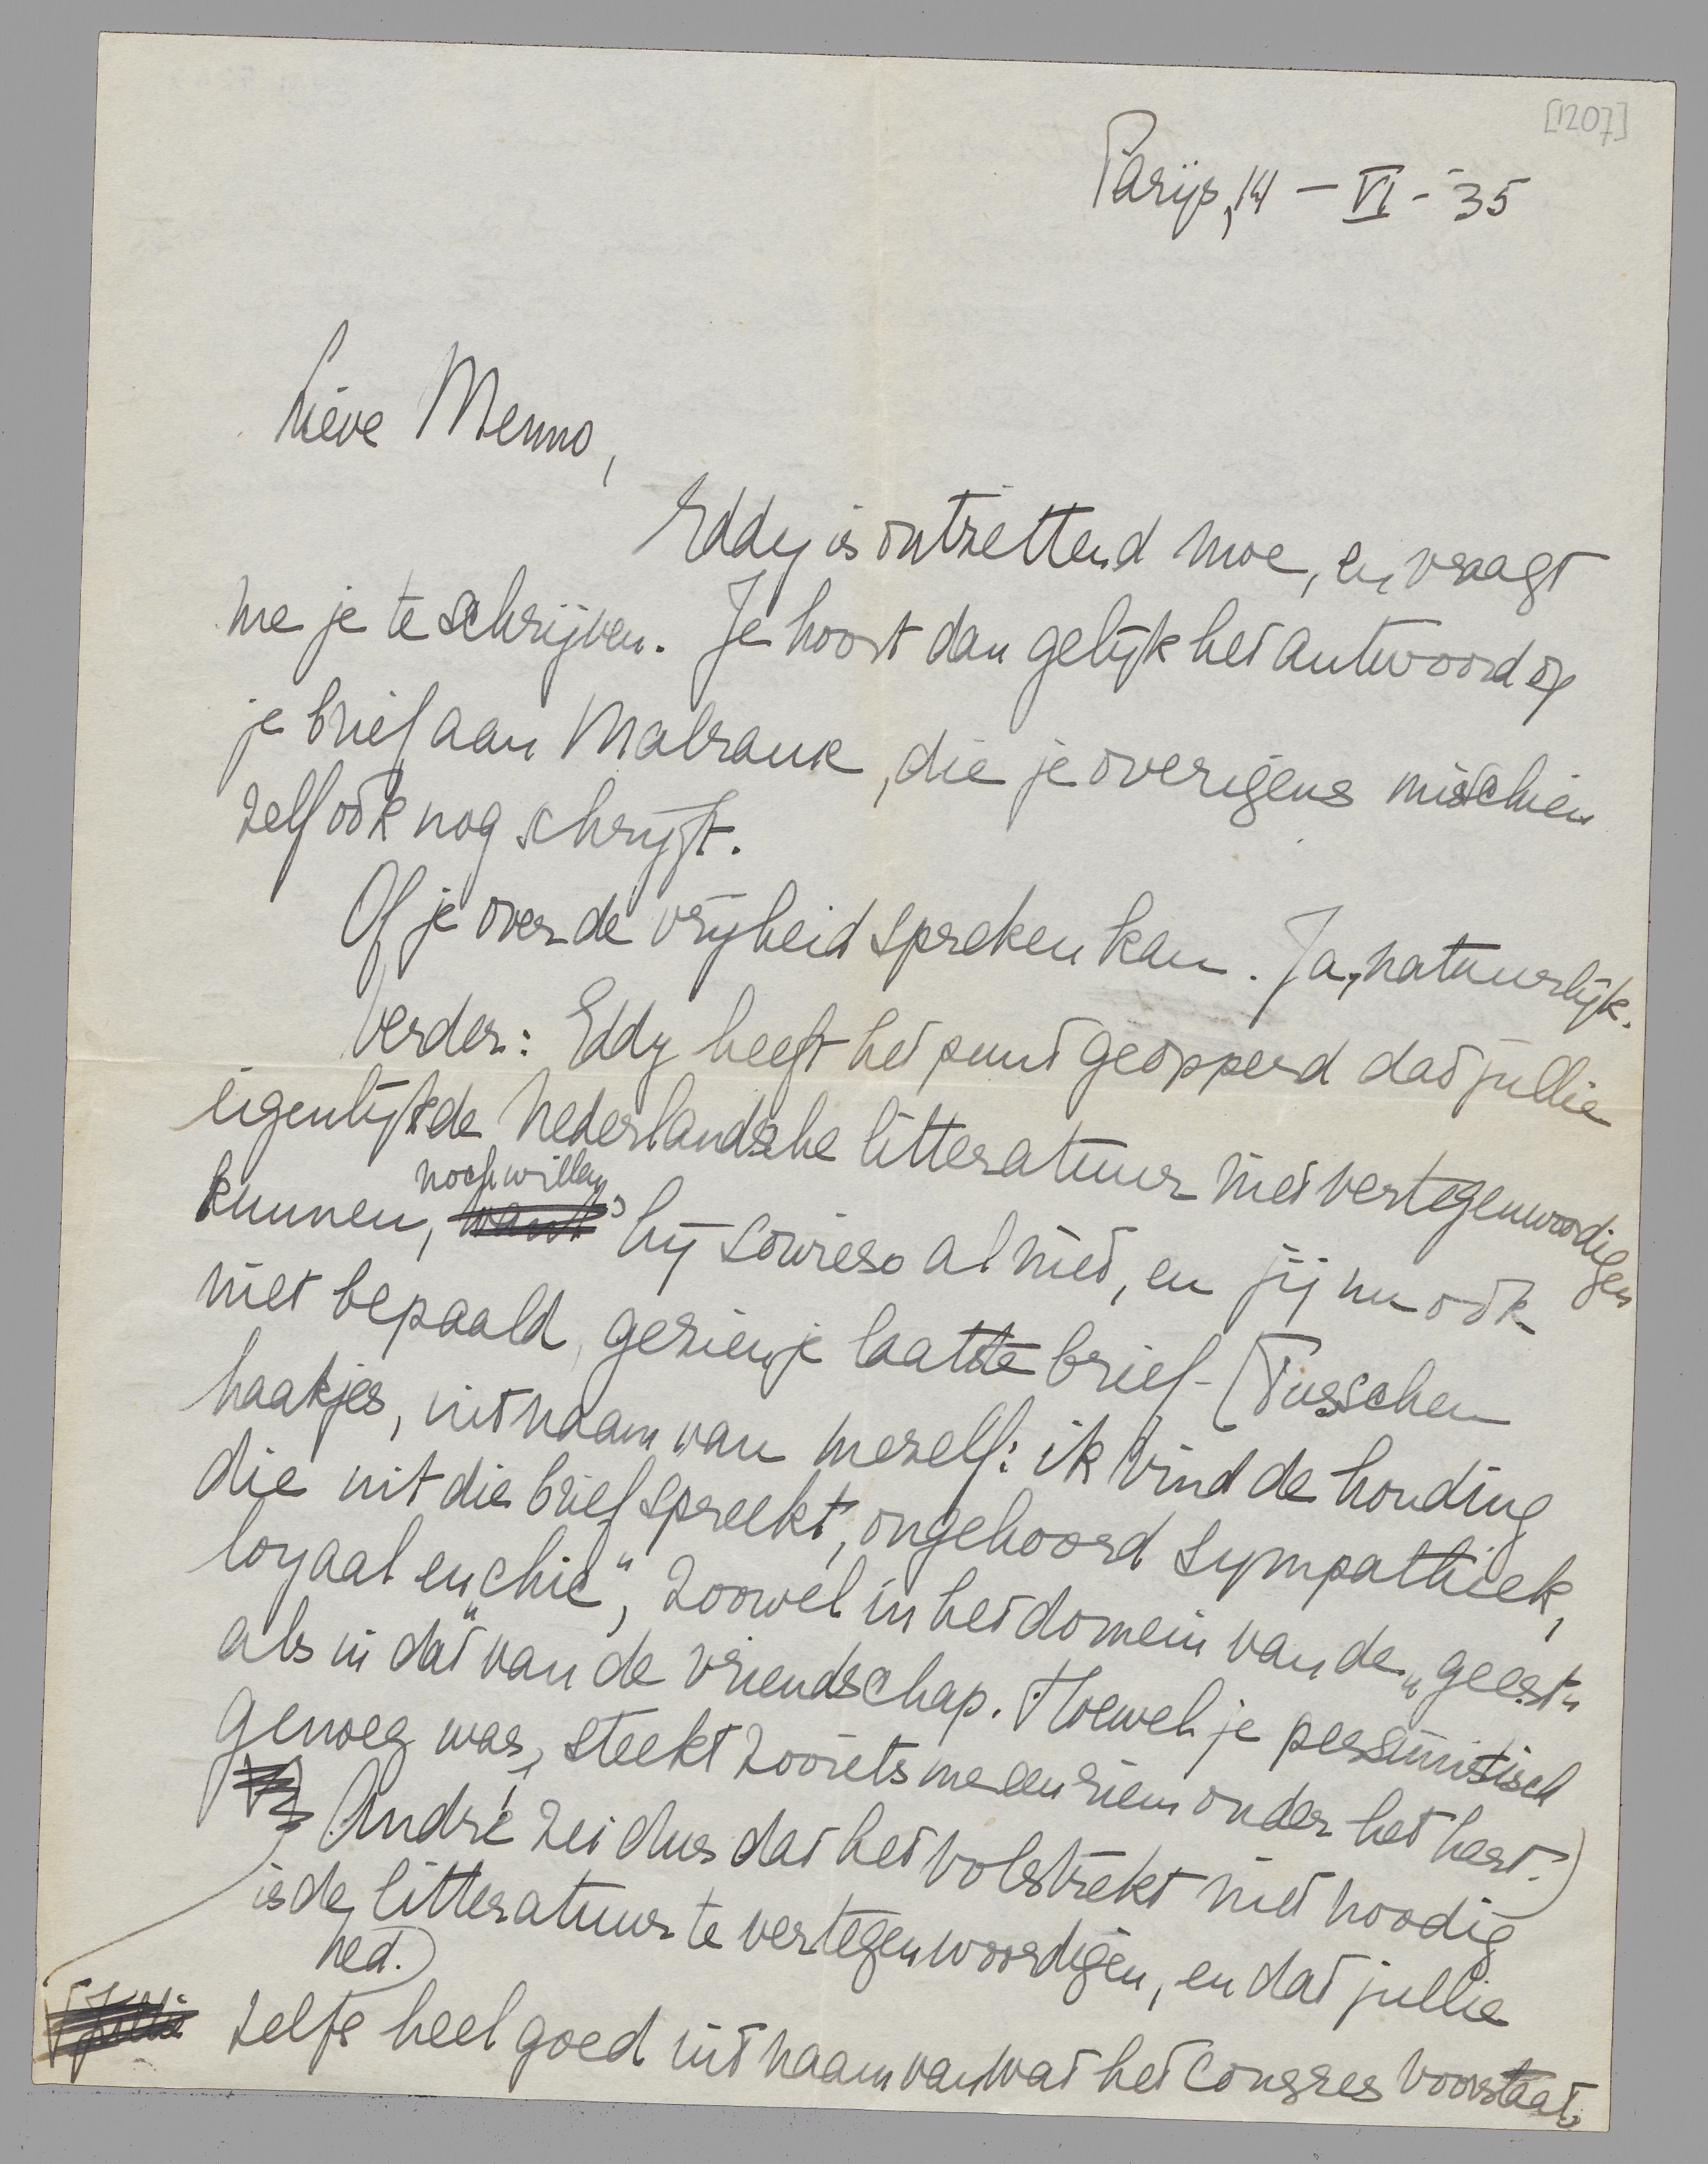 [1207]
Parijs, 14 – VI – '35
Lieve Menno,
Eddy is ontzettend moe, en vraagt
me je te schrijven. Je hoort dan gelijk het antwoord op
je brief aan Malraux, die je overigens misschien
zelf ook nog schrijft.
Of je over de vrijheid spreken kan. Ja, natuurlijk.
Verder: Eddy heeft het punt geopperd dat jullie
eigenlijk de Nederlandsche litteratuur niet vertegenwoordigen
noch willen,
kunnen, want hij sowieso al niet, en jij nu ook
niet bepaald, gezien je laatste brief – (Tusschen
haakjes, uit naam van mezelf: ik vind de houding
die uit die brief spreekt, ongehoord sympathiek,
loyaal en „chic", zoowel in het domein van de „geest"
als in dat van de vriendschap. Hoewel je pessimistisch
genoeg was, steekt zooiets me een riem onder het hart.)
André zei dus dat het volstrekt niet noodig
is de litteratuur te vertegenwoordigen, en dat jullie
ned.)
zelfs heel goed uit naam van wat het Congres voorstaat,